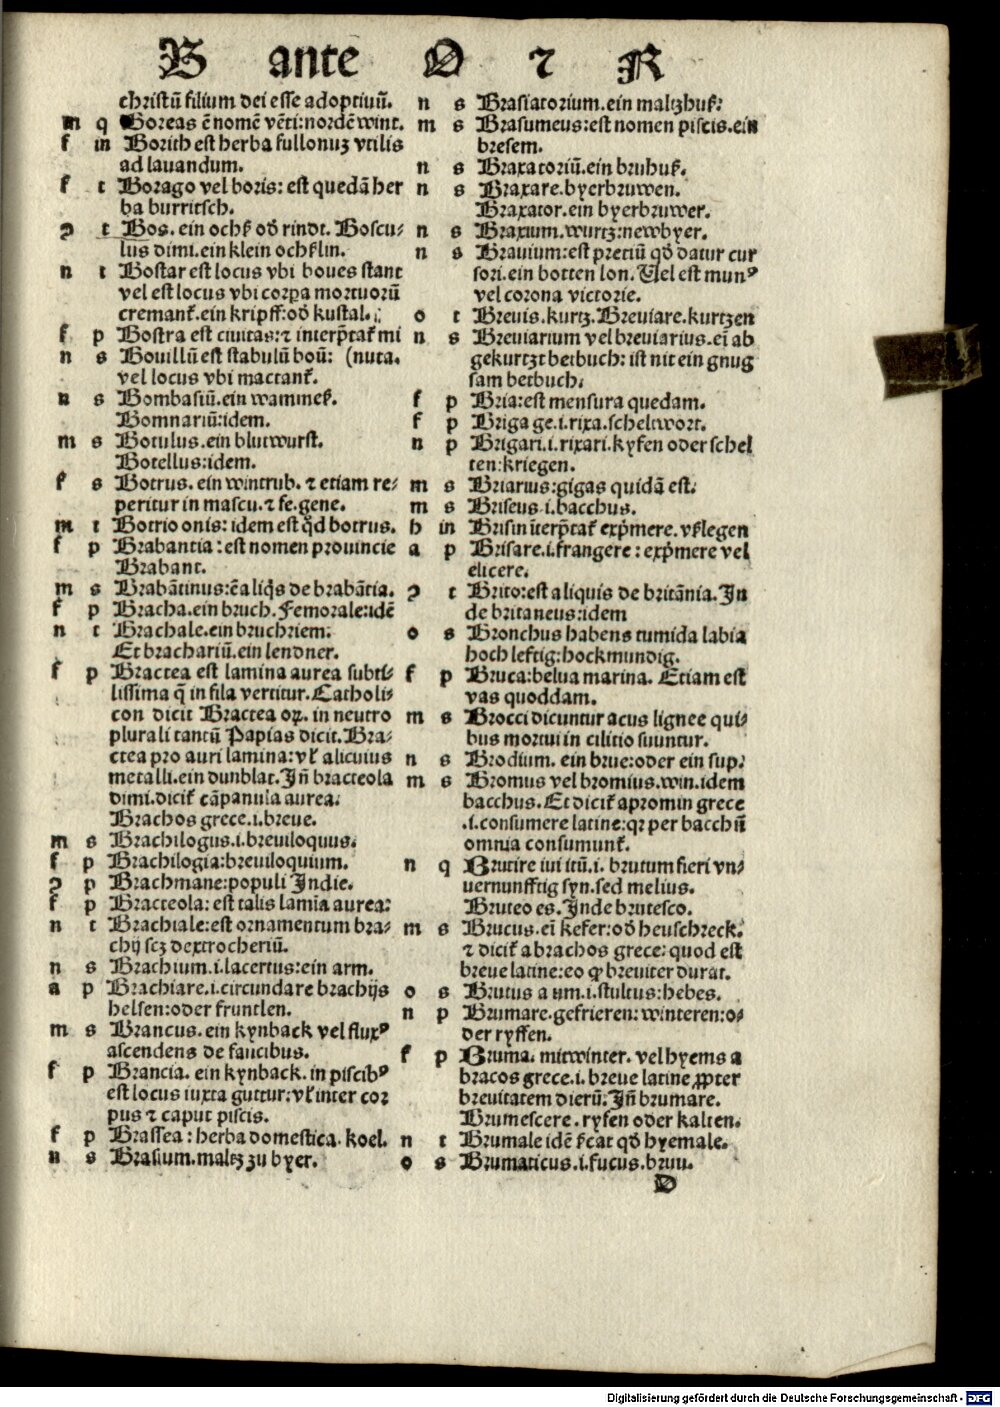 B ante O ⁊ R
christū filium dei esse adoptiuū.
m q Boreas ē nomē vēti:nordē wint.
f in Borith est herba fullonuꝫ vtilis
ad lauandum.
f t Borago vel boris: est quedā her
ba burritsch.
ꝯ t Bos. ein ochß od̄ rindt. Boscu⸗
lus dimi.ein klein ochßlin.
n t Bostar est locus vbi boues stant
vel est locus vbi corpa mortuorū
cremant̄.ein kripff:od̄ kustal.
f p Bostra est ciuitas:⁊ interp̄tat̄ mi
n s Bouillū est stabulū boū: (nuta.
vel locus vbi mactant̄.
n s Bombasiū.ein wammeß.
Bomnariū:idem.
m s Botulus.ein blutwurst.
Botellus:idem.
f s Botrus. ein wintrub. ⁊ etiam re⸗
peritur in mascu.⁊ fe.gene.
m t Botrio onis: idem est qd̄ botrus.
f p Brabantia: est nomen prouincie
Brabant.
m s Brabātinus:ē aliq̄s de brabātia.
f p Bracha.ein bruch. Femorale:idē
n t Brachale.ein bruchriem:
Et brachariū.ein lendner.
f p Bractea est lamina aurea subti⸗
lissima q̄ in fila vertitur. Catholi⸗
con dicit Bractea oꝝ. in neutro
plurali tantū Papias dicit. Bra⸗
ctea pro auri lamina: vl̄ alicuius
metalli.ein dunblat. Jn̄ bracteola
dimi.dicit̄ cāpanula aurea.
Brachos grece.i.breue.
m s Brachilogus.i.breuiloquus.
f p Brachilogia:breuiloquium.
ꝯ p Brachmane:populi Jndie.
f p Bracteola: est talis lamīa aurea:
n t Brachiale:est ornamentum bra⸗
chij scꝫ dextrocheriū.
n s Brachium.i.lacertus:ein arm.
a p Brachiare.i.circundare brachijs
helsen:oder fruntlen.
m s Brancus.ein kynback vel fluxꝰ
ascendens de faucibus.
f p Brancia. ein kynback. in piscibꝰ
est locus iuxta guttur: vl̄ inter cor
pus ⁊ caput piscis.
f p Brassea: herba domestica. koel.
n s Brasium.maltz zu byer.
n s Brasiatorium.ein maltzhuß:
m s Brasumeus:est nomen piscis.ein
bresem.
n s Braxatoriū.ein bruhuß.
n s Braxare.byerbruwen.
Braxator.ein byerbruwer.
n s Braxium.wurtz:newbyer.
n s Brauium:est preciū qd̄ datur cur
sori.ein botten lon. Uel est munꝰ
vel corona victorie.
o t Breuis.kurtz.Breuiare.kurtzen
n s Breuiarium vel breuiarius.eī ab
gekurtzt betbuch: ist nit ein gnug
sam betbuch.
f p Bria:est mensura quedam.
f p Briga ge.i.rixa.scheltwort.
n p Brigari.i.rixari.kyfen oder schel
ten:kriegen.
m s Briarius:gigas quidā est.
m s Briseus.i.bacchus.
h in Brisin īterp̄tat̄ exp̄mere. vßlegen
a p Brisare.i.frangere: exp̄mere vel
elicere.
ꝯ t Brito:est aliquis de britānia. Jn
de britaneus:idem
o s Bronchus habens tumida labia
hoch leftzig:hockmundig.
f p Bruca:belua marina. Etiam est
vas quoddam.
m s Brocci dicuntur acus lignee qui⸗
bus mortui in cilitio suuntur.
n s Brodium. ein brue:oder ein sup:
m s Bromus vel bromius.win.idem
bacchus. Et dicit̄ apromin grece
.i.consumere latine:qꝛ per bacchū
omnia consumunt̄.
n q Brutire iui itū.i. brutum fieri vn⸗
uernunfftig syn.sed melius.
Bruteo es. Jnde brutesco.
m s Brucus.eī kefer:od̄ heuschreck:
⁊ dicit̄ abrachos grece: quod est
breue latine:eo ꝙ breuiter durat.
o s Brutus a um.i.stultus:hebes.
n p Brumare.gefrieren:winteren:o⸗
der ryffen.
f p Bruma. mitwinter. vel hyems a
bracos grece.i. breue latine ꝓpter
breuitatem dierū: Jn̄ brumare.
Brumescere.ryfen oder kalten.
n t Brumale idē sc̄at qd̄ hyemale.
o s Brumaticus.i.fucus.bruu.
D
Digitalisierung gefördert durch die Deutsche Forschungsgemeinschaft - DFG